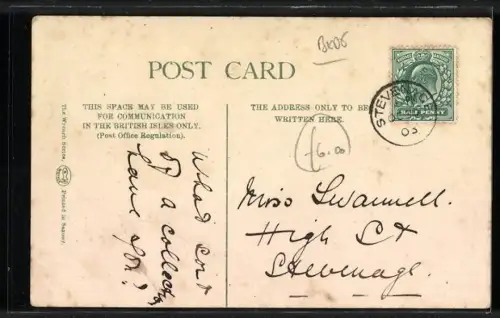 BK05
POST CARD
THIS SPACE MAY BE USED
FOR COMMUNICATION
IN THE BRITISH ISLES ONLY.
(Post Office Regulation).
THE ADDRESS ONLY TO BE
WRITTEN HERE.
The Wrench Series,
Printed in Saxony.
What sort
of a collect
have you?
6.00
Miss Swannell.
High St
Stevenage.
STEVEN
03
HALF PENNY